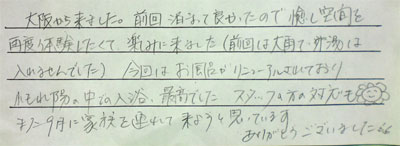 大阪から来ました。前回泊まって良かったので癒し空間を
再度体験したくて、楽みに来ました(前回は大雨で外湯は
入れませんでした) 今回はお風呂がリニューアルされており
木もれ陽の中での入浴、最高でした スタッフの方の対応も
また9月に家族を連れて来ようと思っています
ありがとうございました